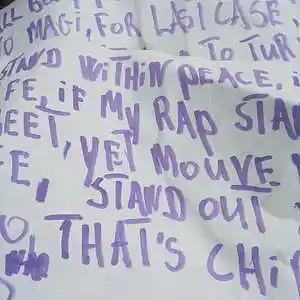 ALL
TO MAGI, FOR LAST CASE
TO TUR
STAND WITHIN PEACE,
FE, iF MY RAP STAN
BEET, YET MOUVE
FE, STAND OUT
THAT'S CHi